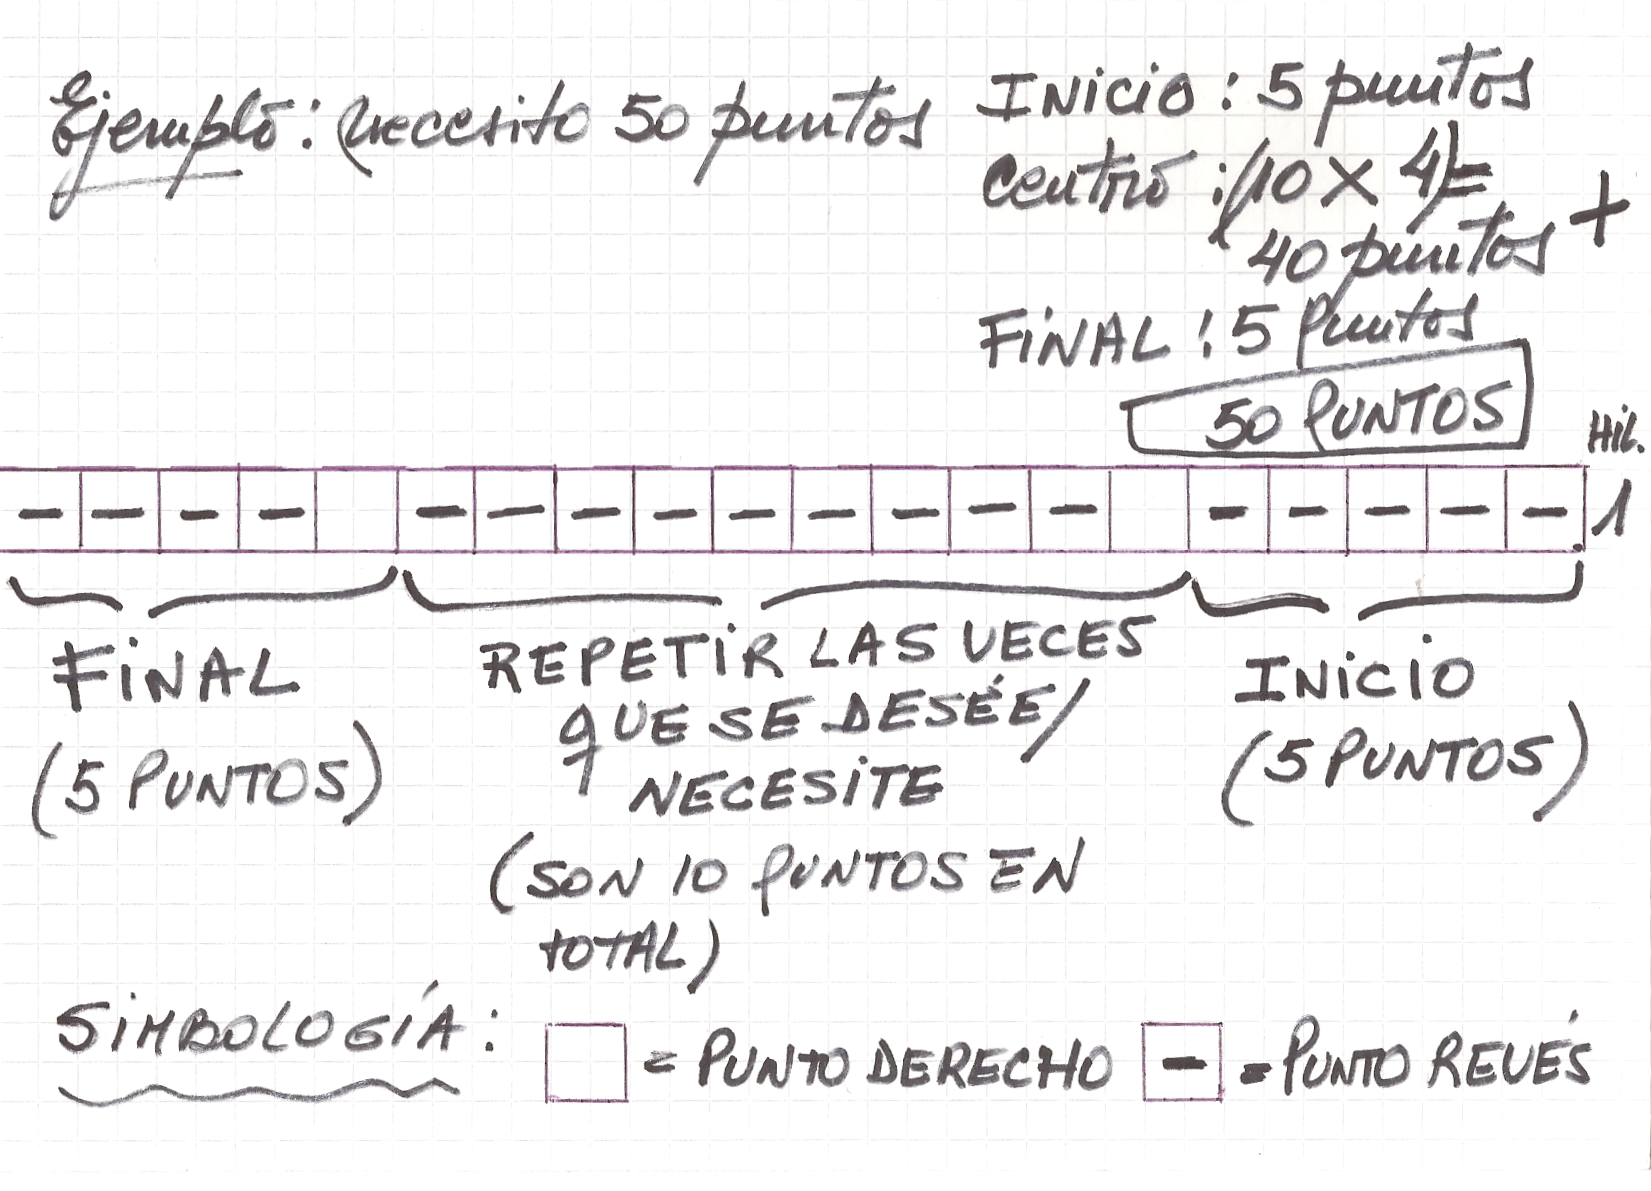 Ejemplo: necesito 50 puntos
INICIO : 5 puntos
Centro : (10 x 4) =
40 puntos
+
FINAL : 5 Puntos
50 PUNTOS
Hil.
- - - - - - - - - - - - - - - - - - 1
FINAL
(5 PUNTOS)
REPETIR LAS VECES
QUE SE DESÉE/
NECESITE
(SON 10 PUNTOS EN
TOTAL)
INICIO
(5 PUNTOS)
SIMBOLOGÍA :
= PUNTO DERECHO
- = PUNTO REVÉS